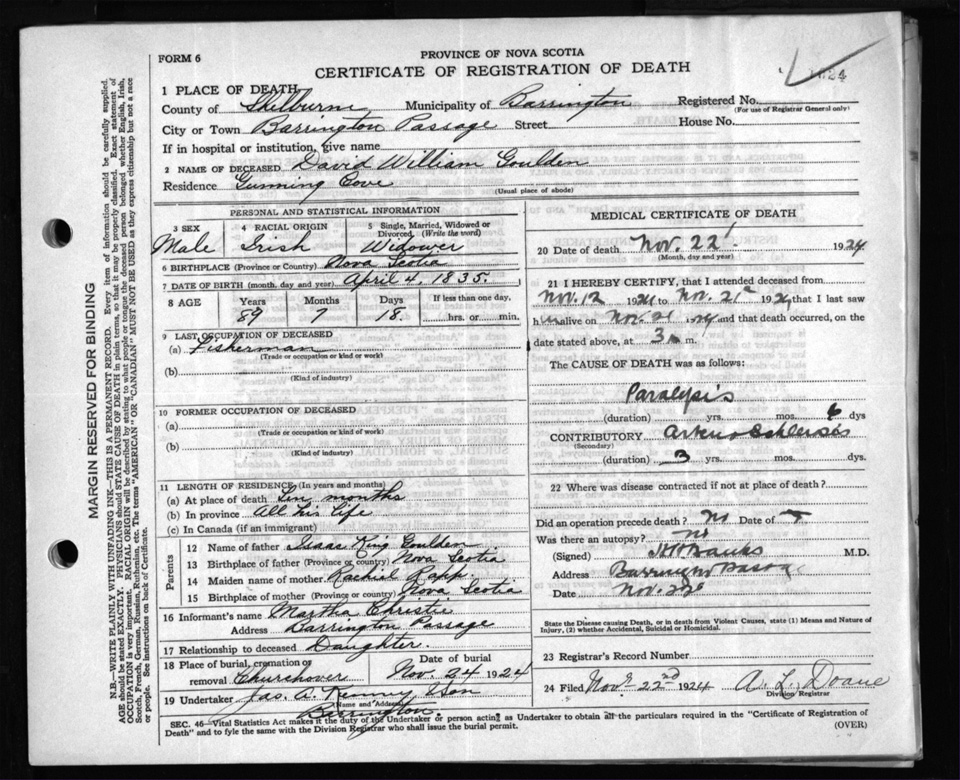 FORM 6
PROVINCE OF NOVA SCOTIA
CERTIFICATE OF REGISTRATION OF DEATH
1924
1 PLACE OF DEATH
County of Shelburne Municipality of Barrington Registered No.
(For use of Registrar General only)
City or Town Barrington Passage Street House No.
If in hospital or institution, give name
2 NAME OF DECEASED David William Goulden
Residence Gunning Cove
(Usual place of abode)
PERSONAL AND STATISTICAL INFORMATION
3 SEX 4 RACIAL ORIGIN 5 Single, Married, Widowed or Divorced. (Write the word)
Male Irish Widower
6 BIRTHPLACE (Province or Country) Nova Scotia
7 DATE OF BIRTH (month, day and year) April 4, 1835.
8 AGE Years Months Days If less than one day,
89 7 18. hrs. or min.
9 LAST OCCUPATION OF DECEASED
(a) Fisherman
(Trade or occupation or kind or work)
(b)
(Kind of industry)
10 FORMER OCCUPATION OF DECEASED
(a)
(Trade or occupation or kind of work)
(b)
(Kind of industry)
11 LENGTH OF RESIDENCE (In years and months)
(a) At place of death Ten months
(b) In province All his life
(c) In Canada (if an immigrant)
Parents
12 Name of father Isaac King Goulden
13 Birthplace of father (Province or country) Nova Scotia
14 Maiden name of mother Rachel Rapp.
15 Birthplace of mother (Province or country) Nova Scotia
16 Informant's name Martha Christie
Address Barrington Passage
17 Relationship to deceased Daughter.
18 Place of burial, cremation or removal Churchover Date of burial Nov. 24 1924
19 Undertaker Jas. A. Kenney &Son
(Name and Address)
Barrington.
MEDICAL CERTIFICATE OF DEATH
20 Date of death Nov. 22 1924
(Month, day and year)
21 I HEREBY CERTIFY, that I attended deceased from
Nov. 12 1924 to Nov. 21st 1924 that I last saw
him alive on Nov. 21 1924 and that death occurred, on the
date stated above, at 3 m.
The CAUSE OF DEATH was as follows:
Paralysis
(duration) yrs. mos. 6 dys
CONTRIBUTORY
(Secondary)
(duration) 3 yrs. mos. dys.
22 Where was disease contracted if not at place of death?
Did an operation precede death? no Date of
Was there an autopsy? no
(Signed) Banks M.D.
Address Barrington Passage
Date Nov. 22
State the Disease causing Death, or in death from Violent Causes, state (1) Means and Nature of Injury, (2) whether Accidental, Suicidal or Homicidal.
23 Registrar's Record Number
24 Filed Nov. 22nd 1924 A. L. Doane
Division Registrar
SEC. 46—Vital Statistics Act makes it the duty of the Undertaker or person acting as Undertaker to obtain all the particulars required in the "Certificate of Registration of
Death" and to fyle the same with the Division Registrar who shall issue the burial permit.
(OVER)
MARGIN RESERVED FOR BINDING
N.B.—WRITE PLAINLY WITH UNFADING INK—THIS IS A PERMANENT RECORD. Every item of information should be carefully supplied.
AGE should be stated EXACTLY. PHYSICIANS should STATE CAUSE OF DEATH in plain terms, so that it may be properly classified. Exact statement of
OCCUPATION is very important. RACIAL ORIGIN will be described by stating to what people or tongue the deceased person belonged whether English, Irish,
Scotch, French, German, Russian, Ruthenian, etc. The terms "AMERICAN" OR "CANADIAN" MUST NOT BE USED as they express citizenship but not a race
or people. See instructions on back of Certificate.